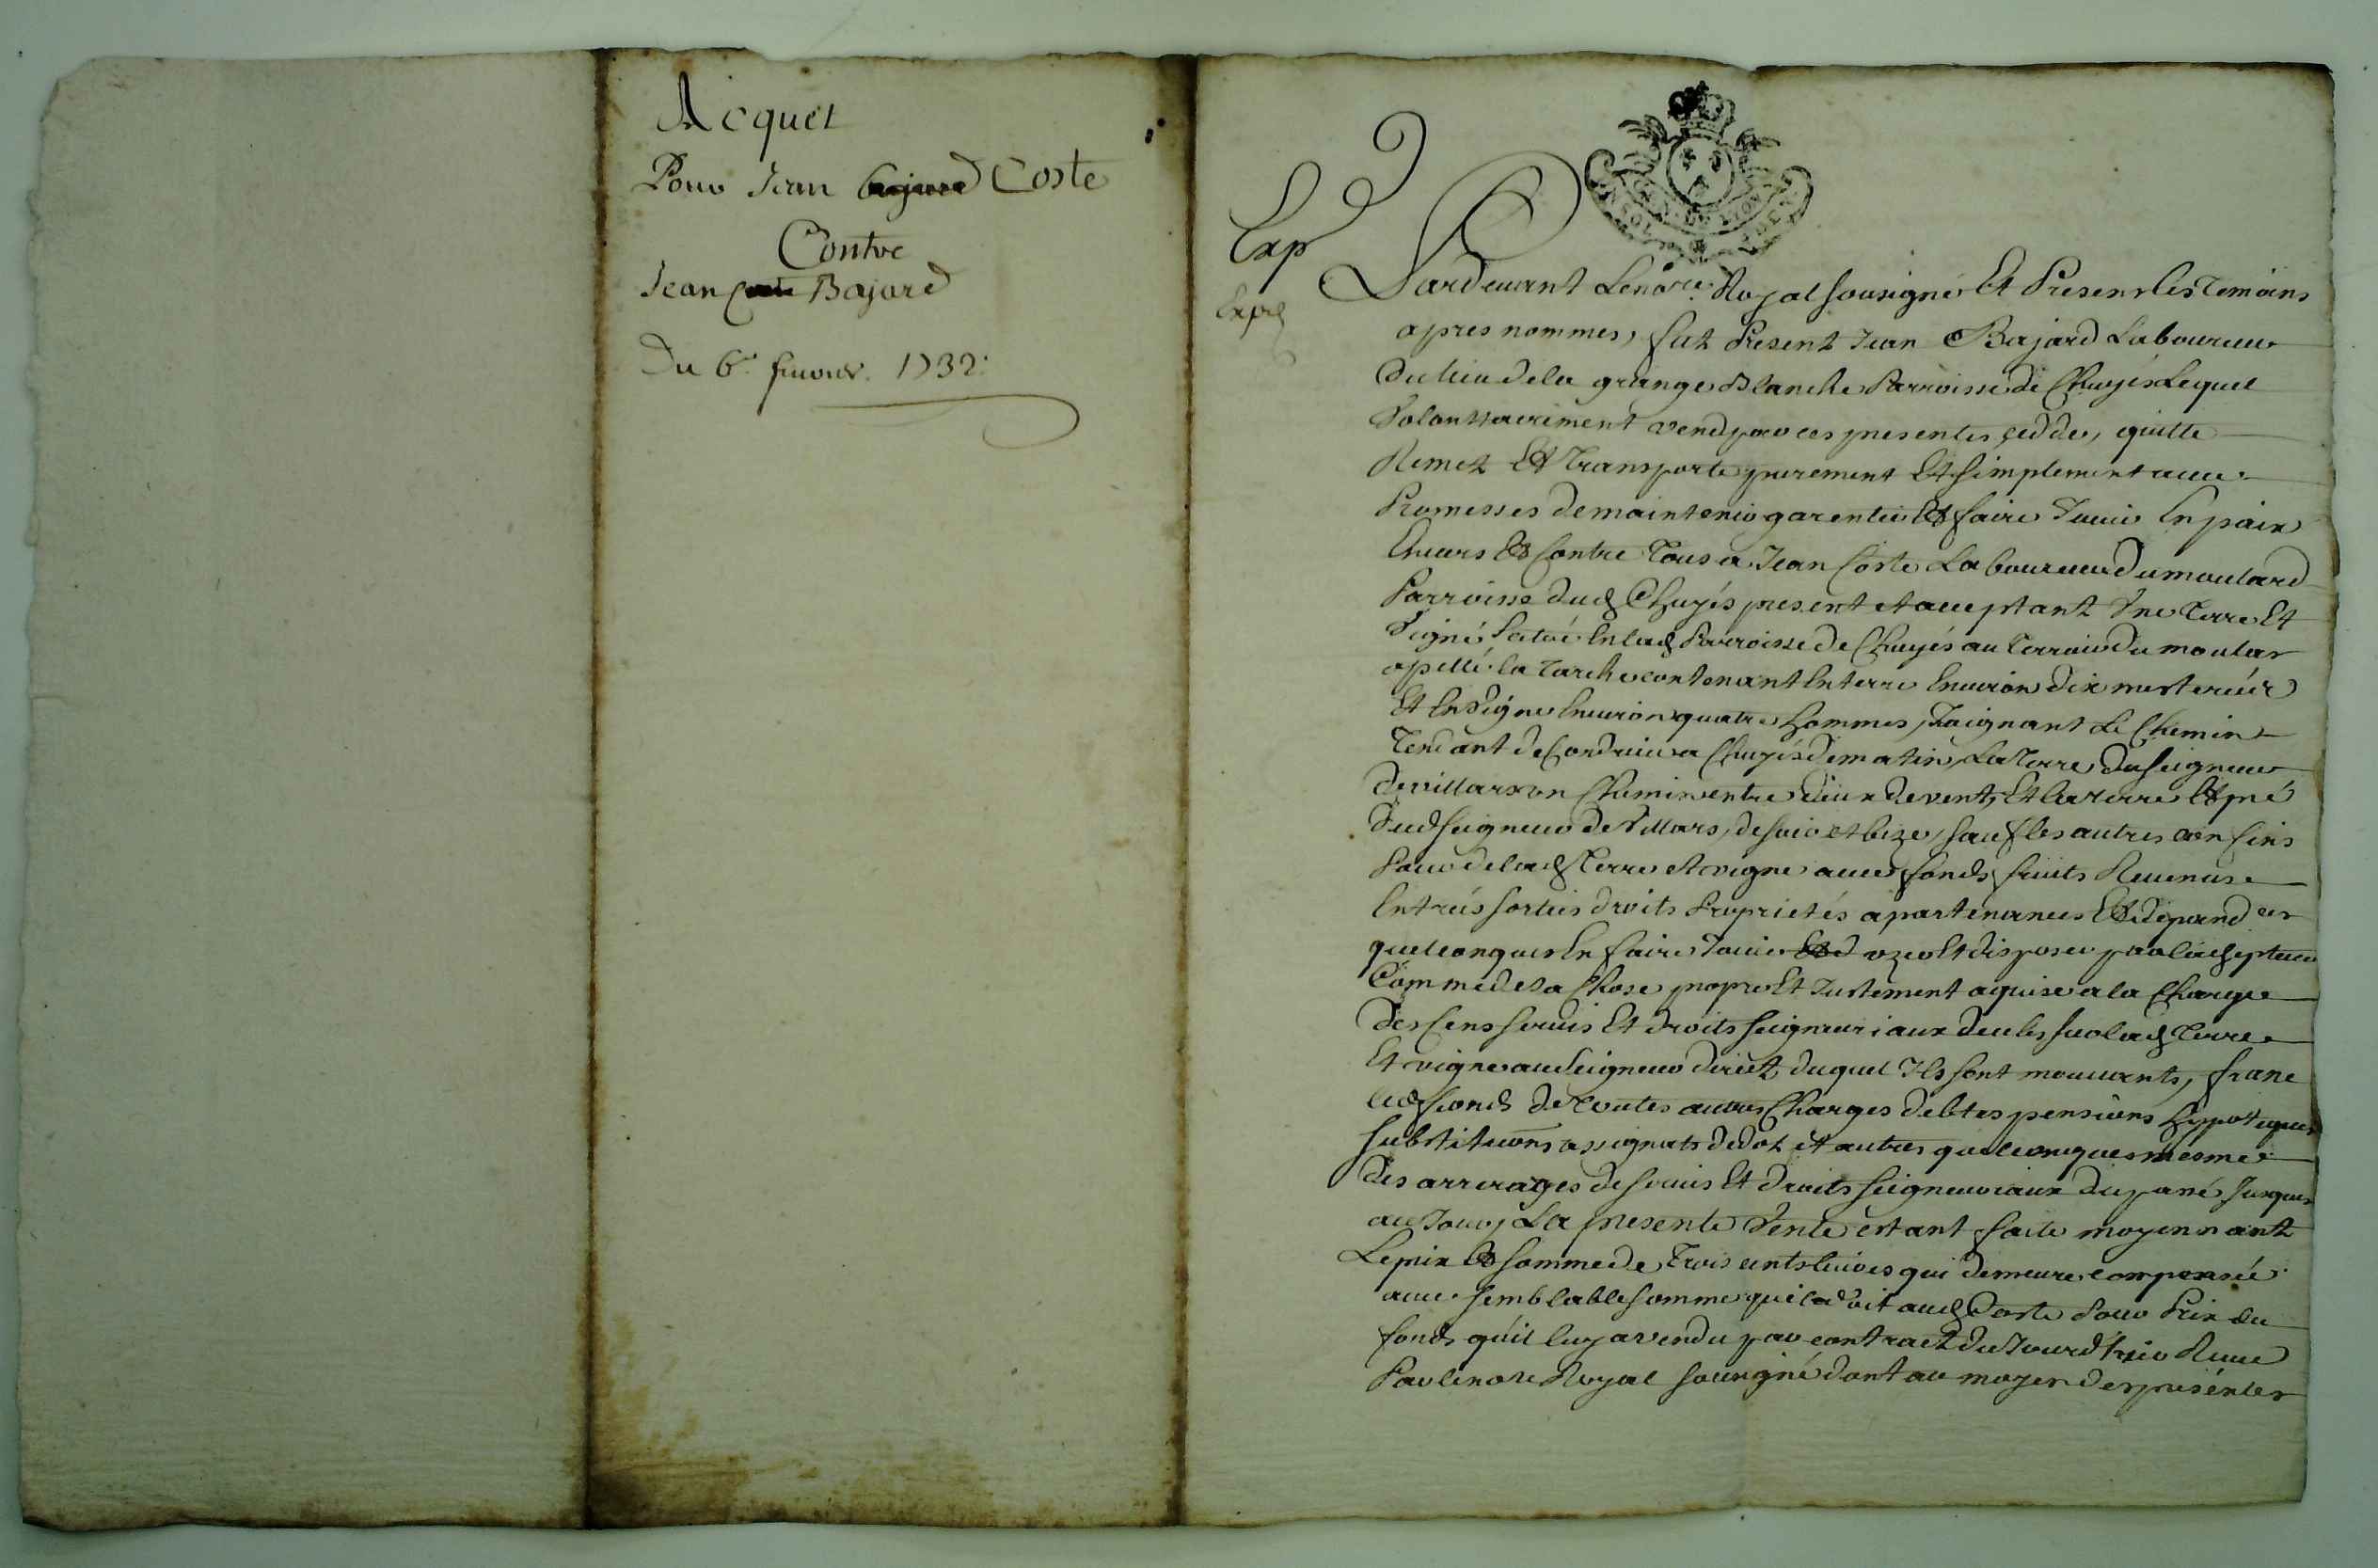 Acquet
Pour Jean Bajard Coste
Contre
Jean Coste Bajard
Du 6e feuvrier 1732
Exp
Expe
GEN. DE LYON
Pardevant Le nore Royal sousigné Et Presents les Temoins
apres nommes, fut Present Jean Bajard Laboureur
du lieu de la grange Blanche Parroisse de Chuyés Lequel
Volontairement vend par ces presentes cedde, quitte
Remet Et Transporte purement Et simplement avec
Promesses de maintenir garentir Et faire Jouir En paix
Envers Et Contre Tous a Jean Coste Laboureur du moulard
Parroisse dud Chuyés present et acceptant Une Terre Et
Vigne scitué En lad Parroisse de Chuyés au Terroir du moular
apellé la Tarche contenant En terre Environ dix mesterées
Et En Vigne Environ quatre hommes, Joignant Le Chemin
Tendant de Condrieu a Chuyés de matin, La Terre du seigneur
de villars un Chemin entre deux de vent, Et la terre Et pré
dud seigneur de Villars, de soir et bize, sauf les autres confins
Pour de lad Terre et vigne avec fonds fruits Revenus
Entrées sorties droits Proprietés apartenances Et dépandces
quelconques En faire Jouir Et d uzer Et disposer par led
Comme de sa Chose propre Et Justement aquise a la Charge
des Cens servis Et droits seigneuriaux deubs sur lad Terre
Et vigne au seigneur direct duquel Ils sont mouvants, franc
led fonds de toutes autres Charges debtes pensions hypoteques
substitutions assignats de dot et autres quelconques mesme
des arrerages de servis Et droits seigneuriaux du passé Jusques
au Jour, La presente Vente estant faite moyennant
Le prix Et somme de Trois cents livres qui demeure compensée
avec semblable somme quil doit aud Coste Pour Prix du
fonds qu'il luy a vendu par contract du Jourd'huy Receu
Par le nore Royal sousigné dont au moyen des presentes